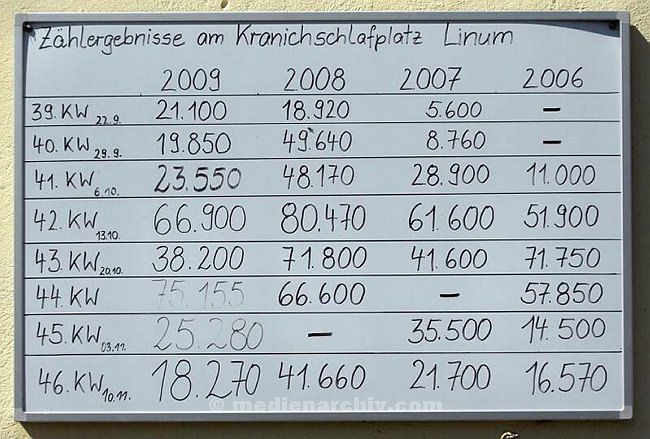 Zählergebnisse am Kranichschlafplatz Linum
2009 2008 2007 2006
39. KW 22.9. 21.100 18.920 5.600 —
40. KW 29.9. 19.850 49.640 8.760 —
41. KW 6.10. 23.550 48.170 28.900 11.000
42. KW 13.10. 66.900 80.470 61.600 51.900
43. KW 20.10. 38.200 71.800 41.600 71.750
44. KW 75.155 66.600 — 57.850
45. KW 03.11. 25.280 — 35.500 14.500
46. KW 10.11. 18.270 41.660 21.700 16.570
© medienarchiv.com